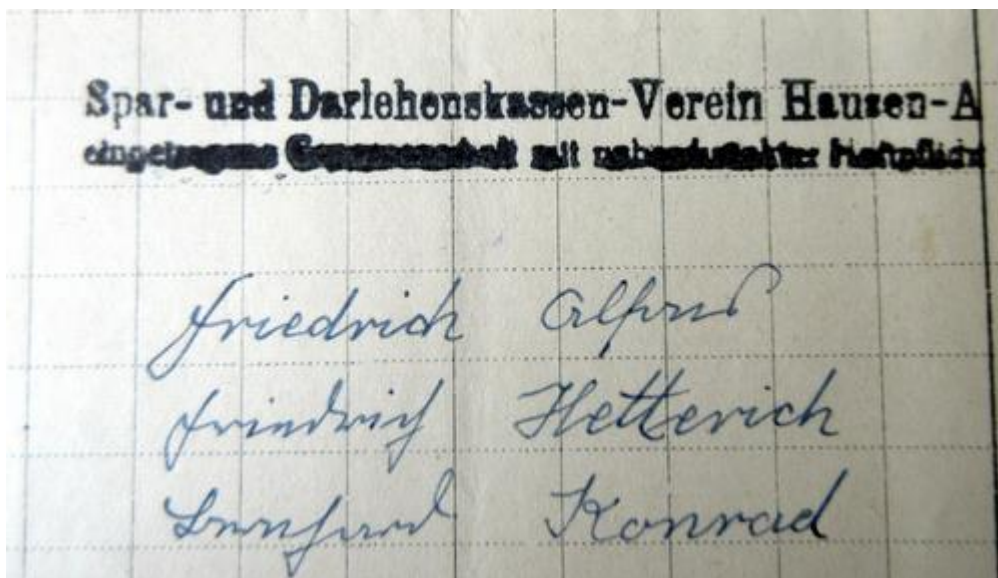 Spar- und Darlehenskassen-Verein Hausen-A
eingetragene Genossenschaft mit unbeschränkter Haftpflicht
Friedrich Alfred
Friedrich Hetterich
Bernhard Konrad